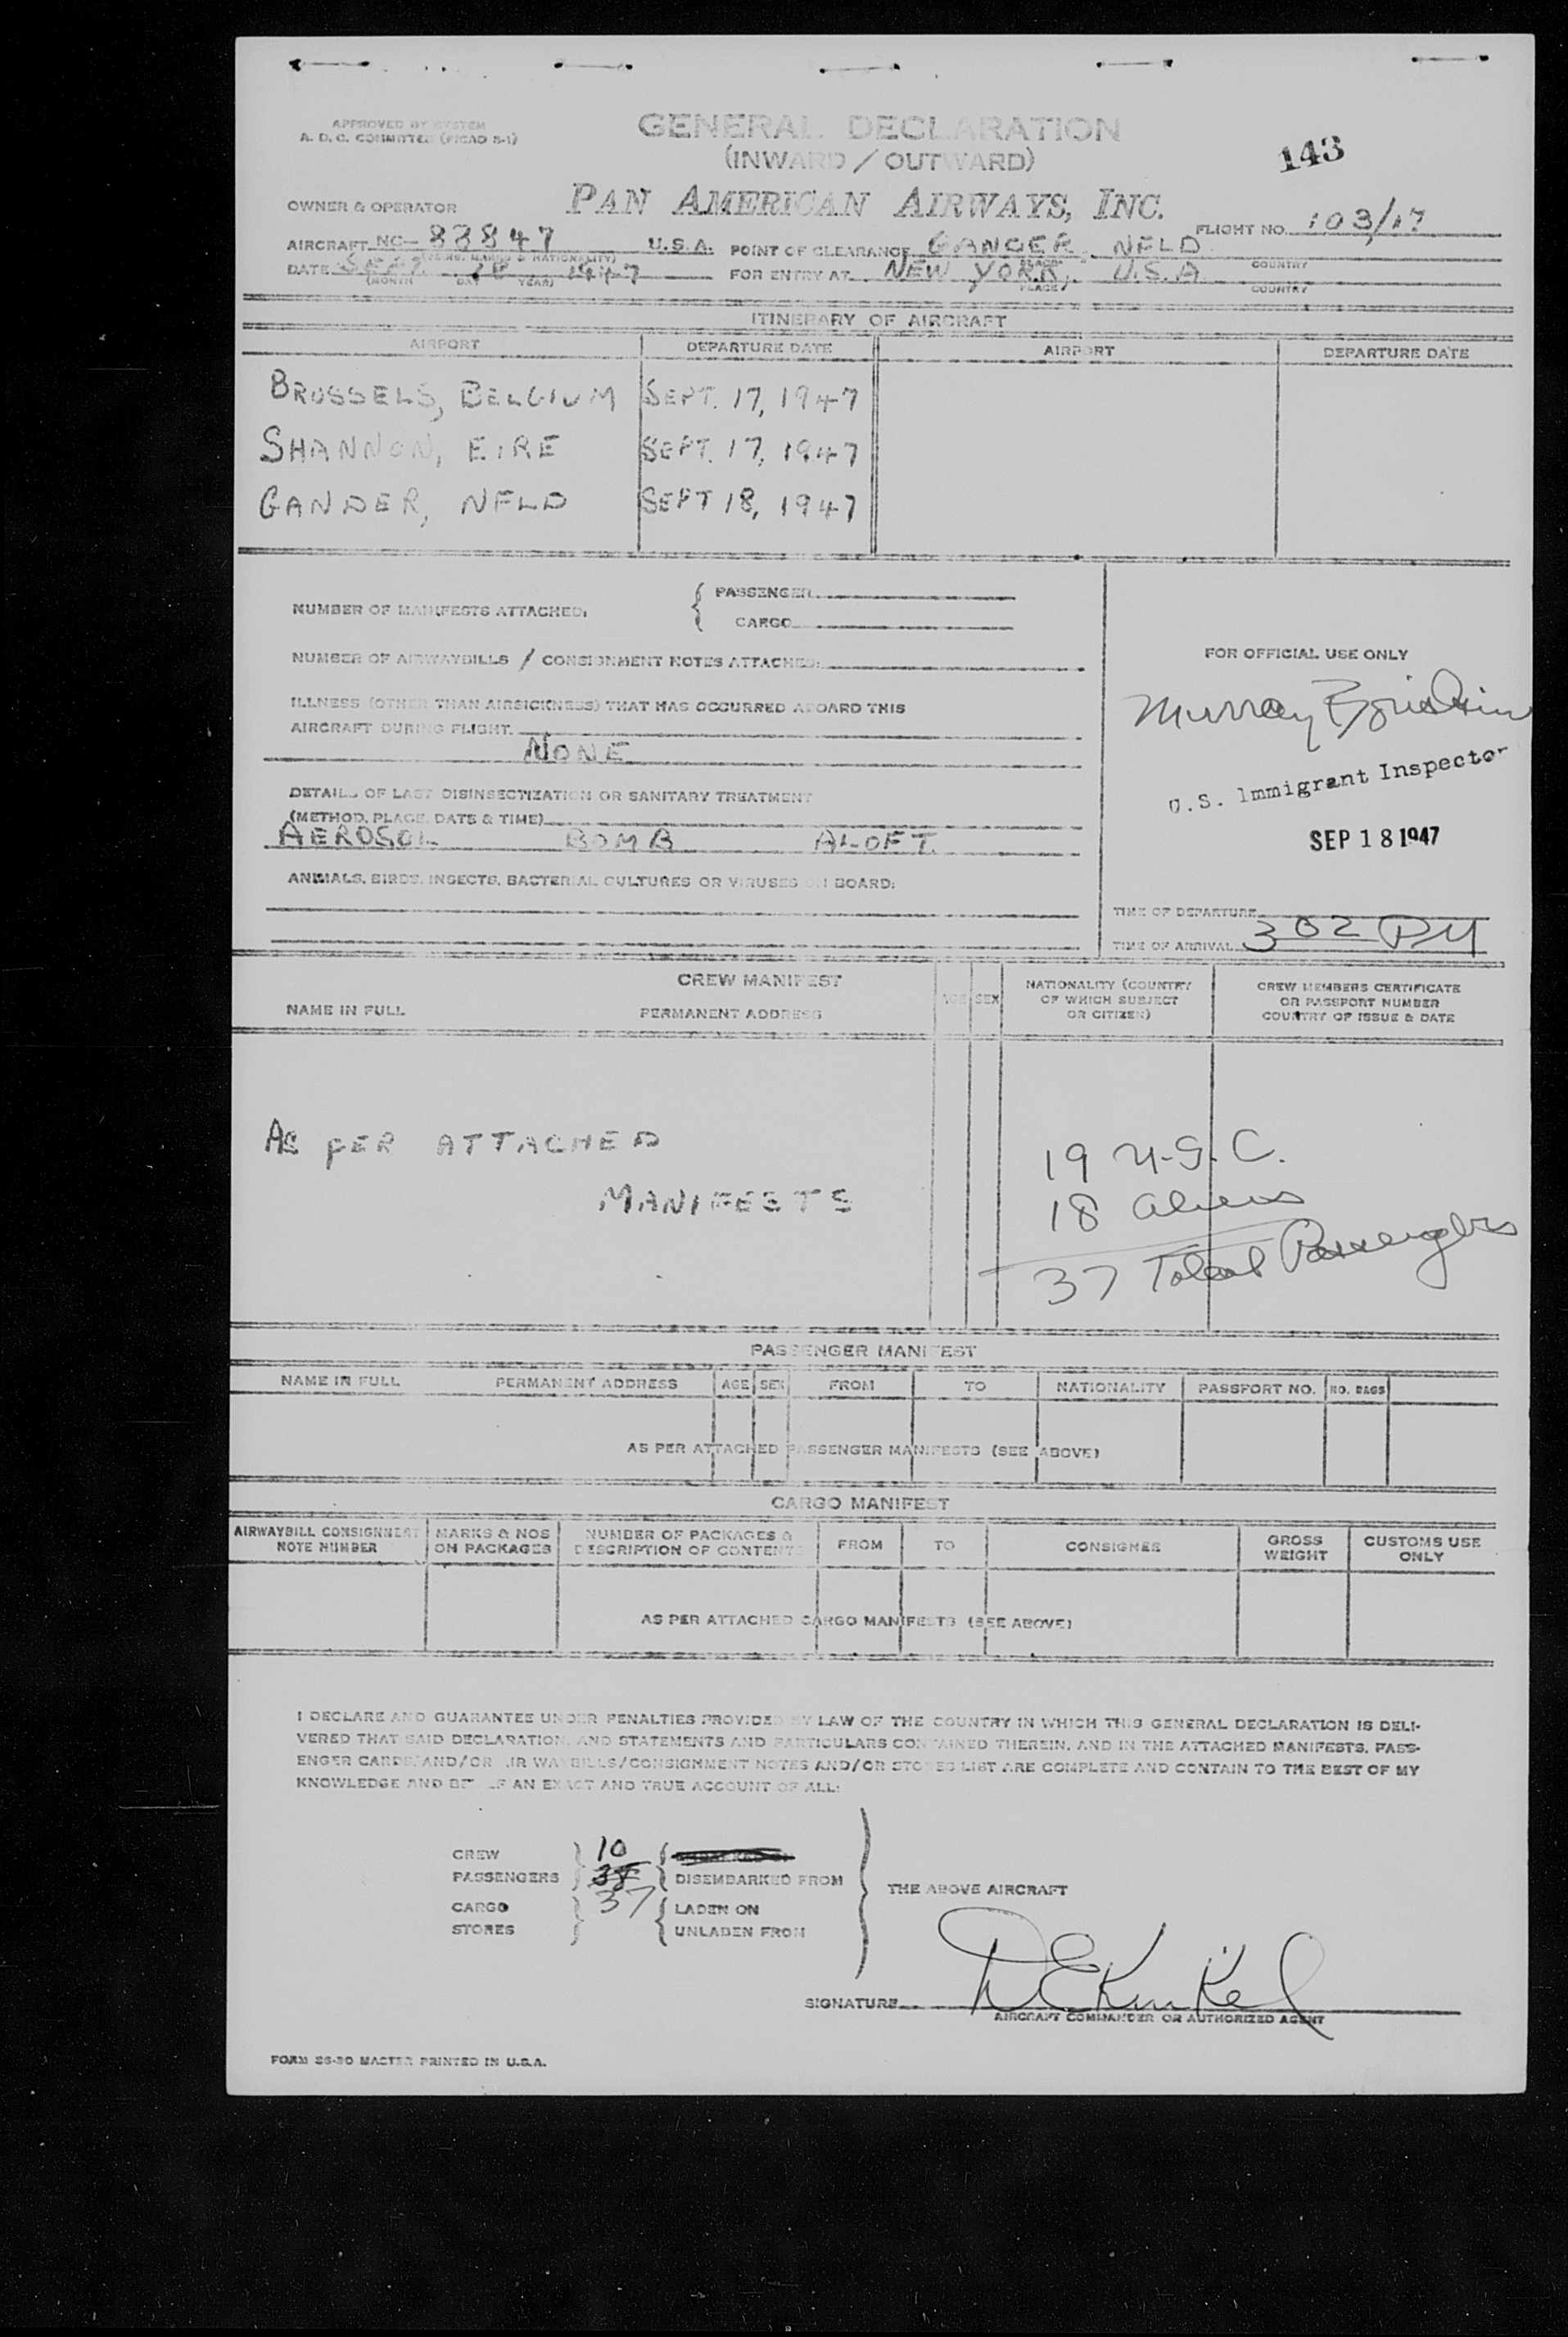 APPROVED BY SYSTEM
A. D. C. COMMITTEE (PICAO S-1)
GENERAL DECLARATION
(INWARD / OUTWARD)
143
PAN AMERICAN AIRWAYS, INC.
OWNER & OPERATOR
FLIGHT NO. 103/17
AIRCRAFT NC- 88847 U.S.A. POINT OF CLEARANCE GANDER NFLD
(REG. MARKS & NATIONALITY) PLACE COUNTRY
DATE SEPT. 18 1947 FOR ENTRY AT NEW YORK, U.S.A.
(MONTH DAY YEAR) PLACE COUNTRY
ITINERARY OF AIRCRAFT
AIRPORT DEPARTURE DATE AIRPORT DEPARTURE DATE
BRUSSELS, BELGIUM SEPT. 17, 1947
SHANNON, EIRE SEPT. 17, 1947
GANDER, NFLD SEPT 18, 1947
NUMBER OF MANIFESTS ATTACHED: { PASSENGER
CARGO
NUMBER OF AIRWAYBILLS / CONSIGNMENT NOTES ATTACHED:
ILLNESS (OTHER THAN AIRSICKNESS) THAT HAS OCCURRED ABOARD THIS
AIRCRAFT DURING FLIGHT.
NONE
DETAILS OF LAST DISINSECTIZATION OR SANITARY TREATMENT
(METHOD, PLACE, DATE & TIME)
AEROSOL BOMB ALOFT.
ANIMALS, BIRDS, INSECTS, BACTERIAL CULTURES OR VIRUSES ON BOARD:
FOR OFFICIAL USE ONLY
Murray
U.S. Immigrant Inspector
SEP 18 1947
TIME OF DEPARTURE
TIME OF ARRIVAL 302 PM
CREW MANIFEST
NAME IN FULL PERMANENT ADDRESS AGE SEX NATIONALITY (COUNTRY OF WHICH SUBJECT OR CITIZEN) CREW MEMBERS CERTIFICATE OR PASSPORT NUMBER COUNTRY OF ISSUE & DATE
AS PER ATTACHED
MANIFESTS
19 U.S.C.
18 aliens
37 Total Passengers
PASSENGER MANIFEST
NAME IN FULL PERMANENT ADDRESS AGE SEX FROM TO NATIONALITY PASSPORT NO. NO. BAGS
AS PER ATTACHED PASSENGER MANIFESTS (SEE ABOVE)
CARGO MANIFEST
AIRWAYBILL CONSIGNMENT NOTE NUMBER MARKS & NOS ON PACKAGES NUMBER OF PACKAGES & DESCRIPTION OF CONTENTS FROM TO CONSIGNEE GROSS WEIGHT CUSTOMS USE ONLY
AS PER ATTACHED CARGO MANIFESTS (SEE ABOVE)
I DECLARE AND GUARANTEE UNDER PENALTIES PROVIDED BY LAW OF THE COUNTRY IN WHICH THIS GENERAL DECLARATION IS DELI-
VERED THAT SAID DECLARATION AND STATEMENTS AND PARTICULARS CONTAINED THEREIN, AND IN THE ATTACHED MANIFESTS, PASS-
ENGER CARDS AND/OR AIR WAYBILLS/CONSIGNMENT NOTES AND/OR STORES LIST ARE COMPLETE AND CONTAIN TO THE BEST OF MY
KNOWLEDGE AND BELIEF AN EXACT AND TRUE ACCOUNT OF ALL:
CREW 10
PASSENGERS 38 DISEMBARKED FROM
37
THE ABOVE AIRCRAFT
CARGO LADEN ON
STORES UNLADEN FROM
SIGNATURE D E Kunkel
AIRCRAFT COMMANDER OR AUTHORIZED AGENT
FORM SS-30 MASTER PRINTED IN U.S.A.